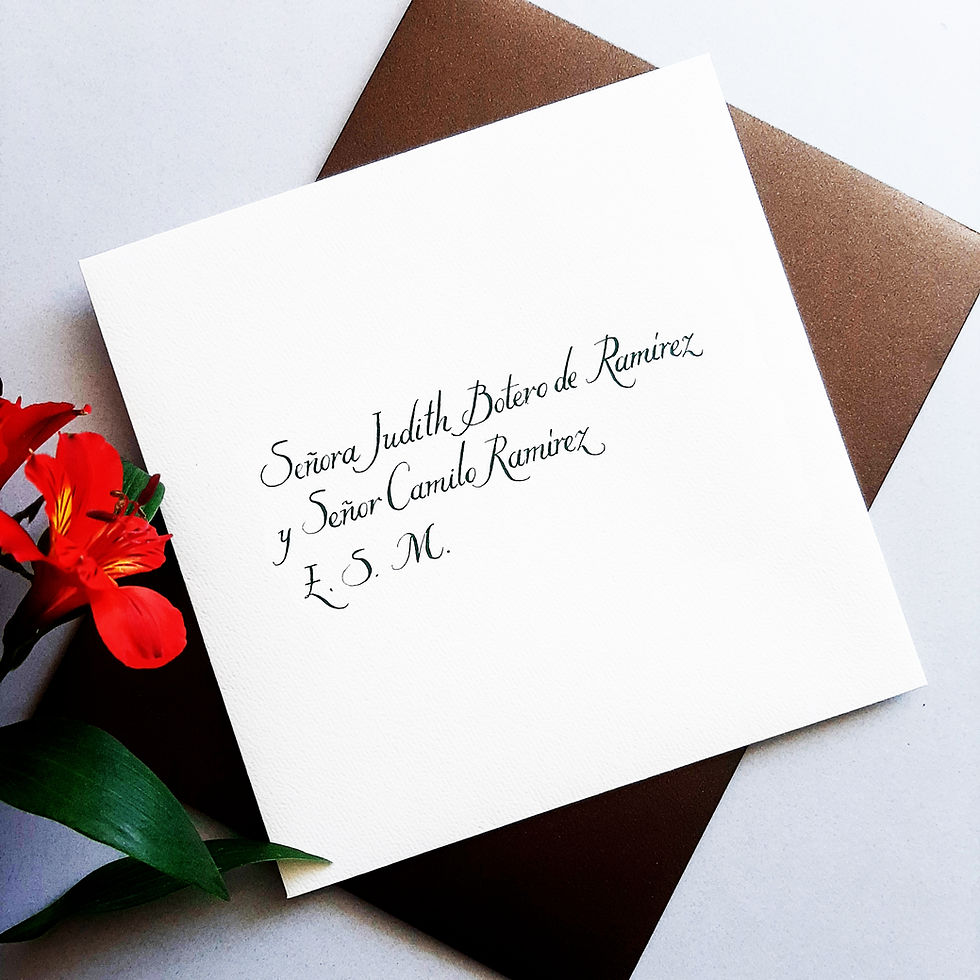 Señora Judith Botero de Ramírez
y Señor Camilo Ramírez
E. S. M.